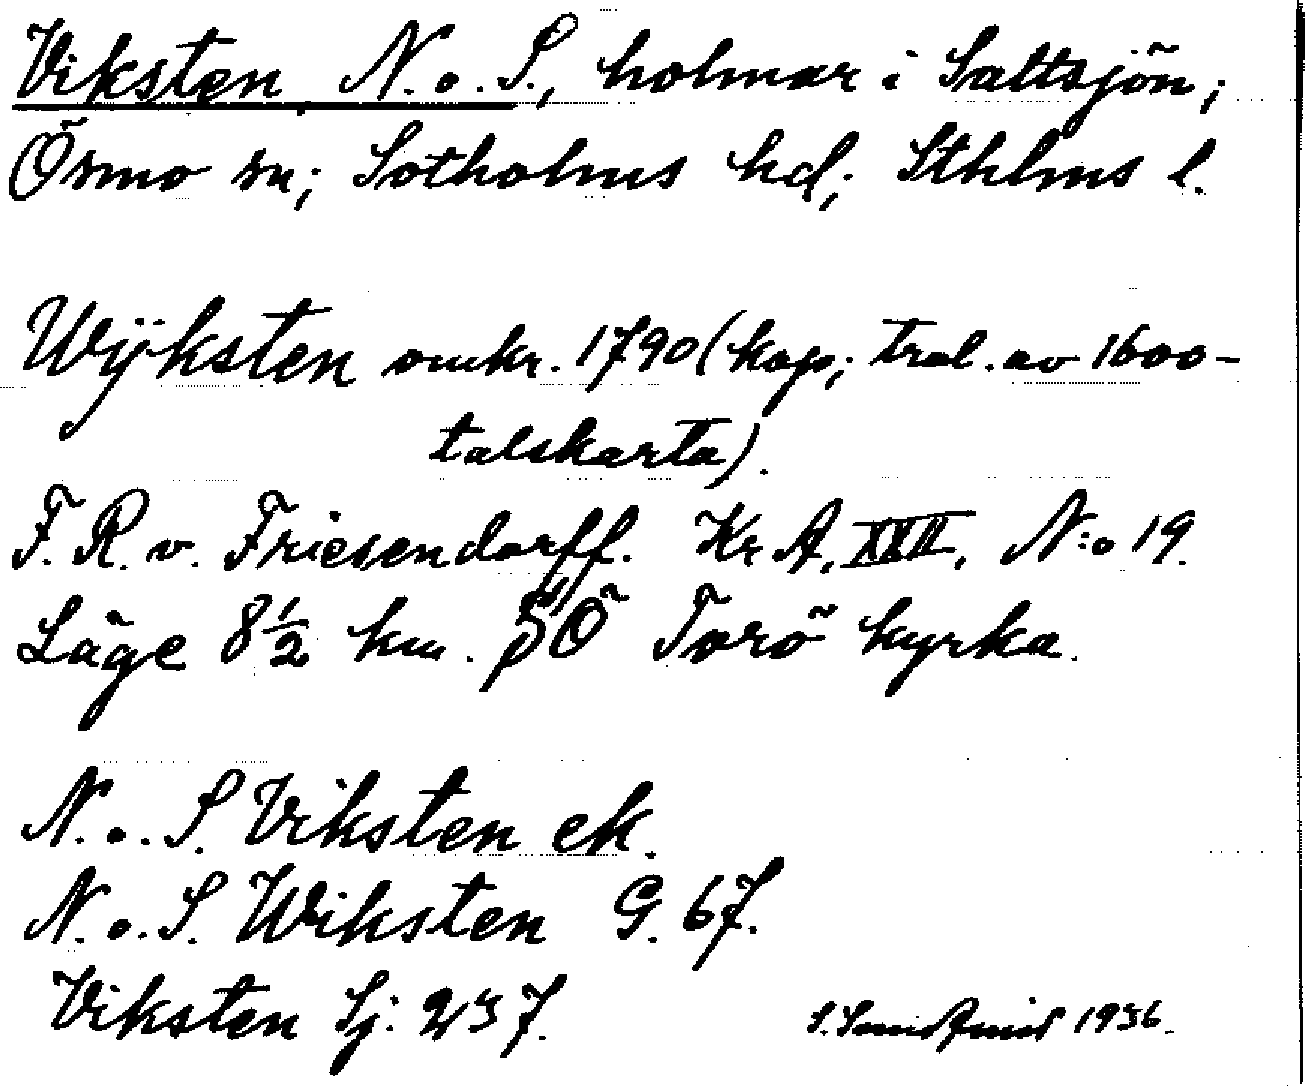 Viksten, N. o. S., holmar i Saltsjön;
Ösmo sn; Sotholms hd; Sthlms l.
Wijksten omkr. 1790 (kop; trol. av 1600-
talskarta).
F. R. v. Friesendorff. Kr A, XXII, N:o 19.
Läge 8½ km. SÖ Torö kyrka.
N. o. S. Viksten ek.
N. o. S. Wiksten G. 67.
Viksten Sj: 237.
1936.